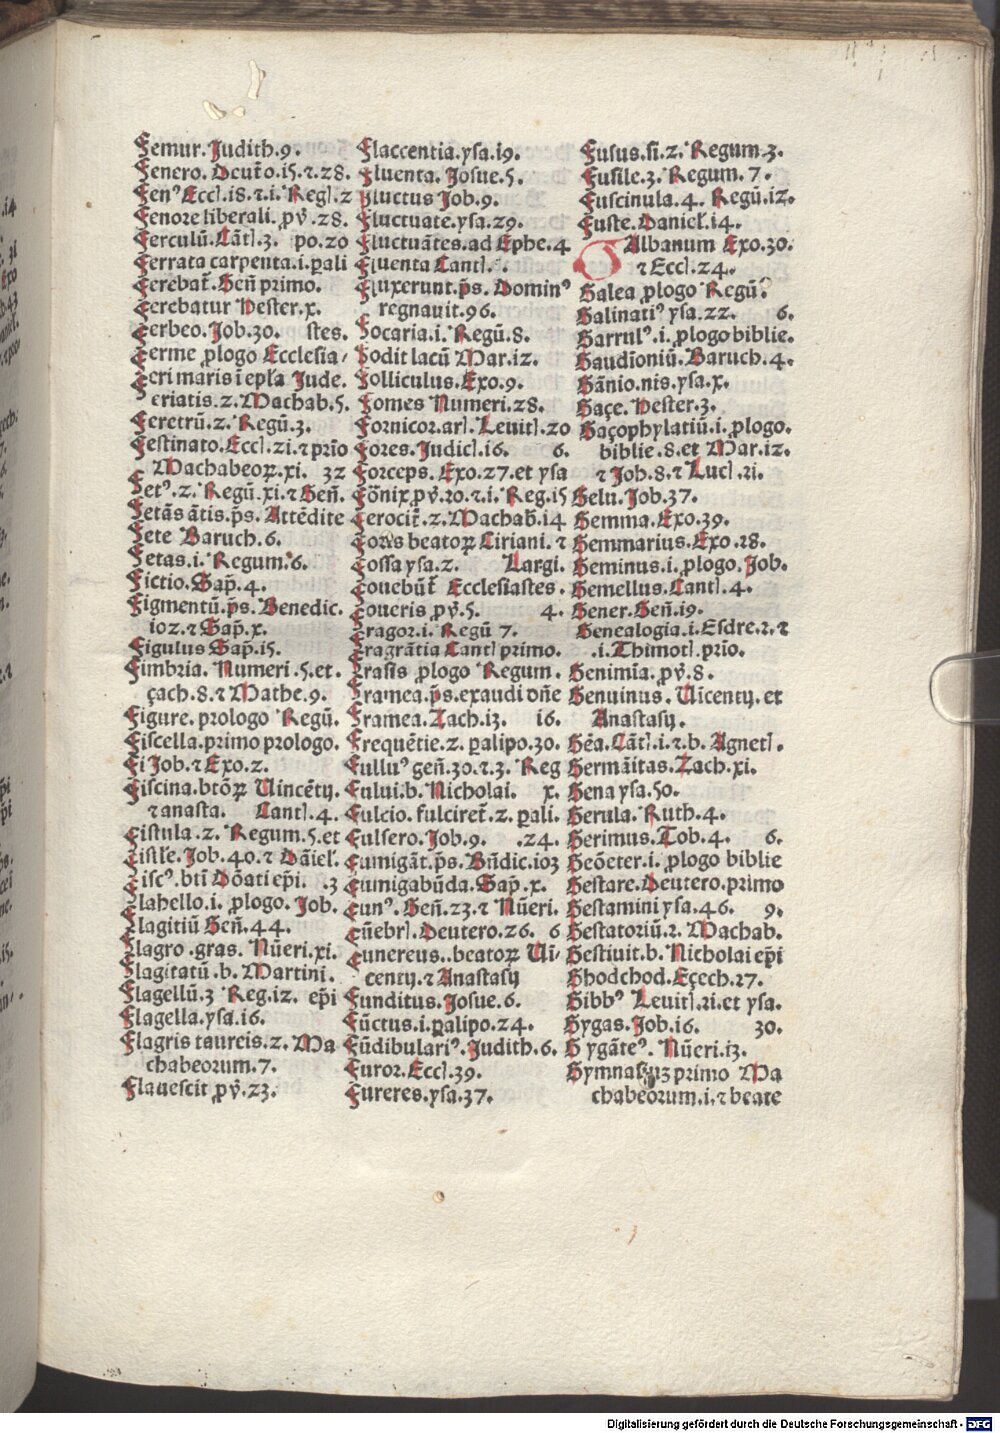 Femur. Judith. 9.
Fenero. Deut̄o. i5. ⁊. 28.
Fenꝰ Eccl. i8. ⁊. i. Regl. 2
Fenore liberali. pv̄. 28.
Ferculū. Cāt̄l. 3. po. 20
Ferrata carpenta. i. ꝑali
Ferebat̄. Geñ primo.
Ferebatur Hester. x.
Ferbeo. Job. 30. stes.
Ferme ꝓlogo Ecclesia/
Feri maris ī epl̄a Jude.
criatis. 2. Machab. 5.
Feretrū. 2. Regū. 3.
Festinato. Eccl. 2i. ⁊ prīo
Machabeoꝝ. xi. 32
Fetꝰ. 2. Regū. xi. ⁊ Geñ.
Fetās ātis. p̄s. Attēdite
Fete Baruch. 6.
Fetas. i. Regum. 6.
Fictio. Sap̄. 4.
Figmentū. p̄s. Benedic.
io2. ⁊ Sap̄. x.
Figulus Sap̄. i5.
Fimbria. Numeri. 5. et.
çach. 8. ⁊ Mathe. 9.
Figure. prologo Regū.
Fiscella. primo prologo.
Fi Job. ⁊ Exo. 2.
Fiscina. btōꝝ Uincēty.
⁊ anasta. Cantl. 4.
Fistula. 2. Regum. 5. et
Fisil̄e. Job. 40. ⁊ Dāiel̄.
Fiscꝰ. btī Dōati ep̄i. .3
Flabello. i. ꝓlogo. Job.
Flagitiū Geñ. 44.
Flagro. gras. Nūeri. xi.
Flagitatū. b. Martini.
Flagellū. 3 Reg. i2. ep̄i
Flagella. ysa. i6.
Flagris taureis. 2. Ma
chabeorum. 7.
Flauescit pv̄. 23.
Flaccentia. ysa. i9.
Fluenta. Josue. 5.
Fluctus Job. 9.
Fluctuate. ysa. 29.
Fluctuātes. ad Ephe. 4
Fluenta Cantl.
Fluxerunt. p̄s. Dominꝰ
regnauit. 96.
Focaria. i. Regū. 8.
Fodit lacū Mar. i2.
Folliculus. Exo. 9.
Fomes Numeri. 28.
Fornicor. arl. Leuitl. 20
Fores. Judicl. i6. 6.
Forceps. Exo. 27. et ysa
Fōnix. pv̄. 20. ⁊. i. Reg. i5
Ferocit̄. 2. Machab̄. i4
Fores beatoꝝ Ciriani. ⁊
Fossa ysa. 2. Largi.
Fouebūt̄ Ecclesiastes.
Foueris pv̄. 5. 4.
Fragor. i. Regū 7.
Fragrātia Cantl primo.
Frasis ꝓlogo Regum.
Framea. p̄s. exaudi dñe
Framea. Zach. i3. i6.
Frequētie. 2. ꝑalipo. 30.
Fulluꝰ geñ. 30. ⁊. 3. Reg
Fului. b. Nicholai. x.
Fulcio. fulciret̄. 2. ꝑali.
Fulsero. Job. 9. .24.
Fumigāt. p̄s. Bñdic. io3
Fumigabūda. Sap̄. x.
Funꝰ. Geñ. 23. ⁊ Nūeri.
Fūebrl. Deutero. 26. 6
Funereus. beatoꝝ Ui/
centy. ⁊ Anastasy
Funditus. Josue. 6.
Fūctus. i. ꝑalipo. 24.
Fūdibulariꝰ. Judith. 6.
Furor. Eccl. 39.
Fureres. ysa. 37.
Fusus. fi. 2. Regum. 3.
Fusile. 3. Regum. 7.
Fuscinula. 4. Regū. i2.
Fuste. Daniel̄. i4.
GAlbanum Exo. 30.
⁊ Eccl. 24.
Galea ꝓlogo Regū.
Galinatiꝰ ysa. 22. 6.
Garrulꝰ. i. ꝓlogo biblie.
Gaudīoniū. Baruch. 4.
Gānio. nis. ysa. x.
Gaçe. Hester. 3.
Gaçophylatiū. i. ꝓlogo.
biblie. 8. et Mar. i2.
⁊ Job. 8. ⁊ Lucl. 2i.
Gelu. Job. 37.
Gemma. Exo. 39.
Gemmarius. Exo. 28.
Geminus. i. ꝓlogo. Job.
Gemellus. Cantl. 4.
Gener. Geñ. i9.
Genealogia. i. Esdre. 2. ⁊
. i. Thimotl. prīo.
Genimia. pv̄. 8.
Genuinus. Uincenty. et
Anastasy.
Gēa. Cāt̄l. i. ⁊. b. Agnetl.
Germāitas. Zach. xi.
Gena ysa. 50.
Gerula. Ruth. 4.
Gerimus. Tob. 4. 6.
Geōeter. i. ꝓlogo biblie
Gestare. Deutero. primo
Gestamini ysa. 46. 9.
Gestatoriū. 2. Machab.
Gestiuit. b. Nicholai ep̄i
Ghodchod. Eçech. 27.
Gibbꝰ Leuitl. 2i. et ysa.
Gygas. Job. i6. 30.
Gygāteꝰ. Nūeri. i3.
primo Ma
chabeorum. i. ⁊ beate
Digitalisierung gefördert durch die Deutsche Forschungsgemeinschaft - DFG